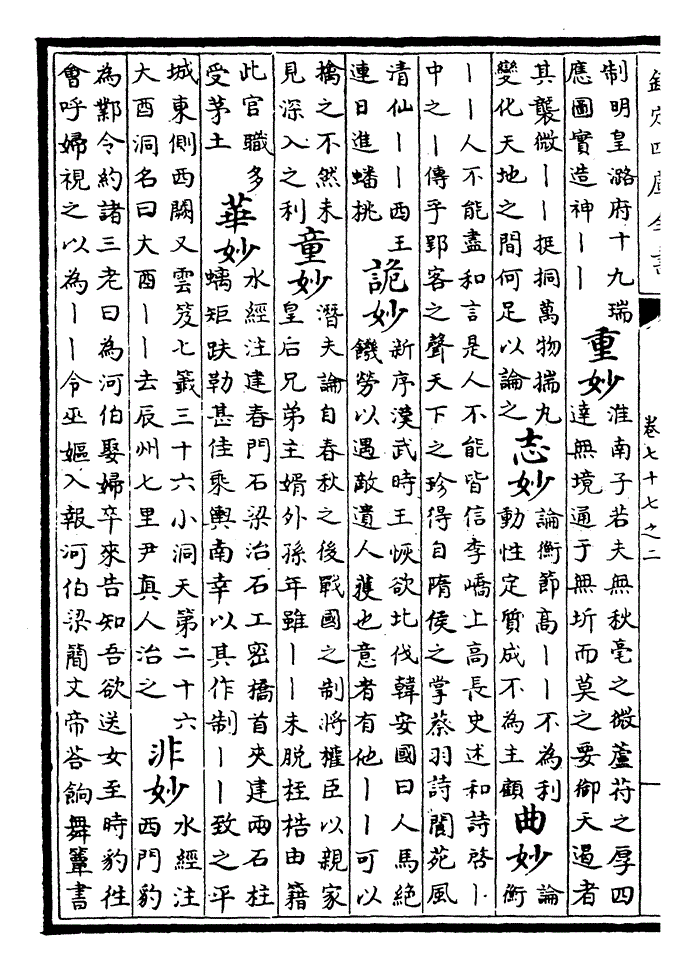 欽定四庫全書 卷七十七之二 一
制明皇潞府十九瑞
應圖實造神丨丨
重妙
淮南子若夫無秋毫之微蘆苻之厚四
達無境通于無圻而莫之要御夭遏者
其襲微丨丨挺挏萬物揣丸
變化天地之間何足以論之
志妙
論衡節高丨丨不為利
動性定質成不為主顧
曲妙
論
衡
丨丨人不能盡和言是人不能皆信李嶠上高長史述和詩啓丨
中之丨傳乎郢客之聲天下之珍得自隋侯之掌蔡羽詩閬苑風
清仙丨丨西王
連日進蟠桃
詭妙
新序漢武時王恢欲北伐韓安國曰人馬絶
饑勞以遇敵遺人獲也意者有他丨丨可以
擒之不然未
見深入之利
童妙
潛夫論自春秋之後戰國之制將權臣以親家
皇后兄弟主婿外孫年雖丨丨未脱桎梏由籍
此官職多
受茅土
華妙
水經注建春門石梁治石工密橋首夾建兩石柱
螭矩趺勒甚佳乘輿南幸以其作制丨丨致之平
城東側西闕又雲笈七籤三十六小洞天第二十六
大酉洞名曰大酉丨丨去辰州七里尹真人治之
非妙
水經注
西門豹
為鄴令約諸三老曰為河伯娶婦卒來告知吾欲送女至時豹徃
會呼婦視之以為丨丨令巫嫗入報河伯梁簡文帝荅餉舞簟書